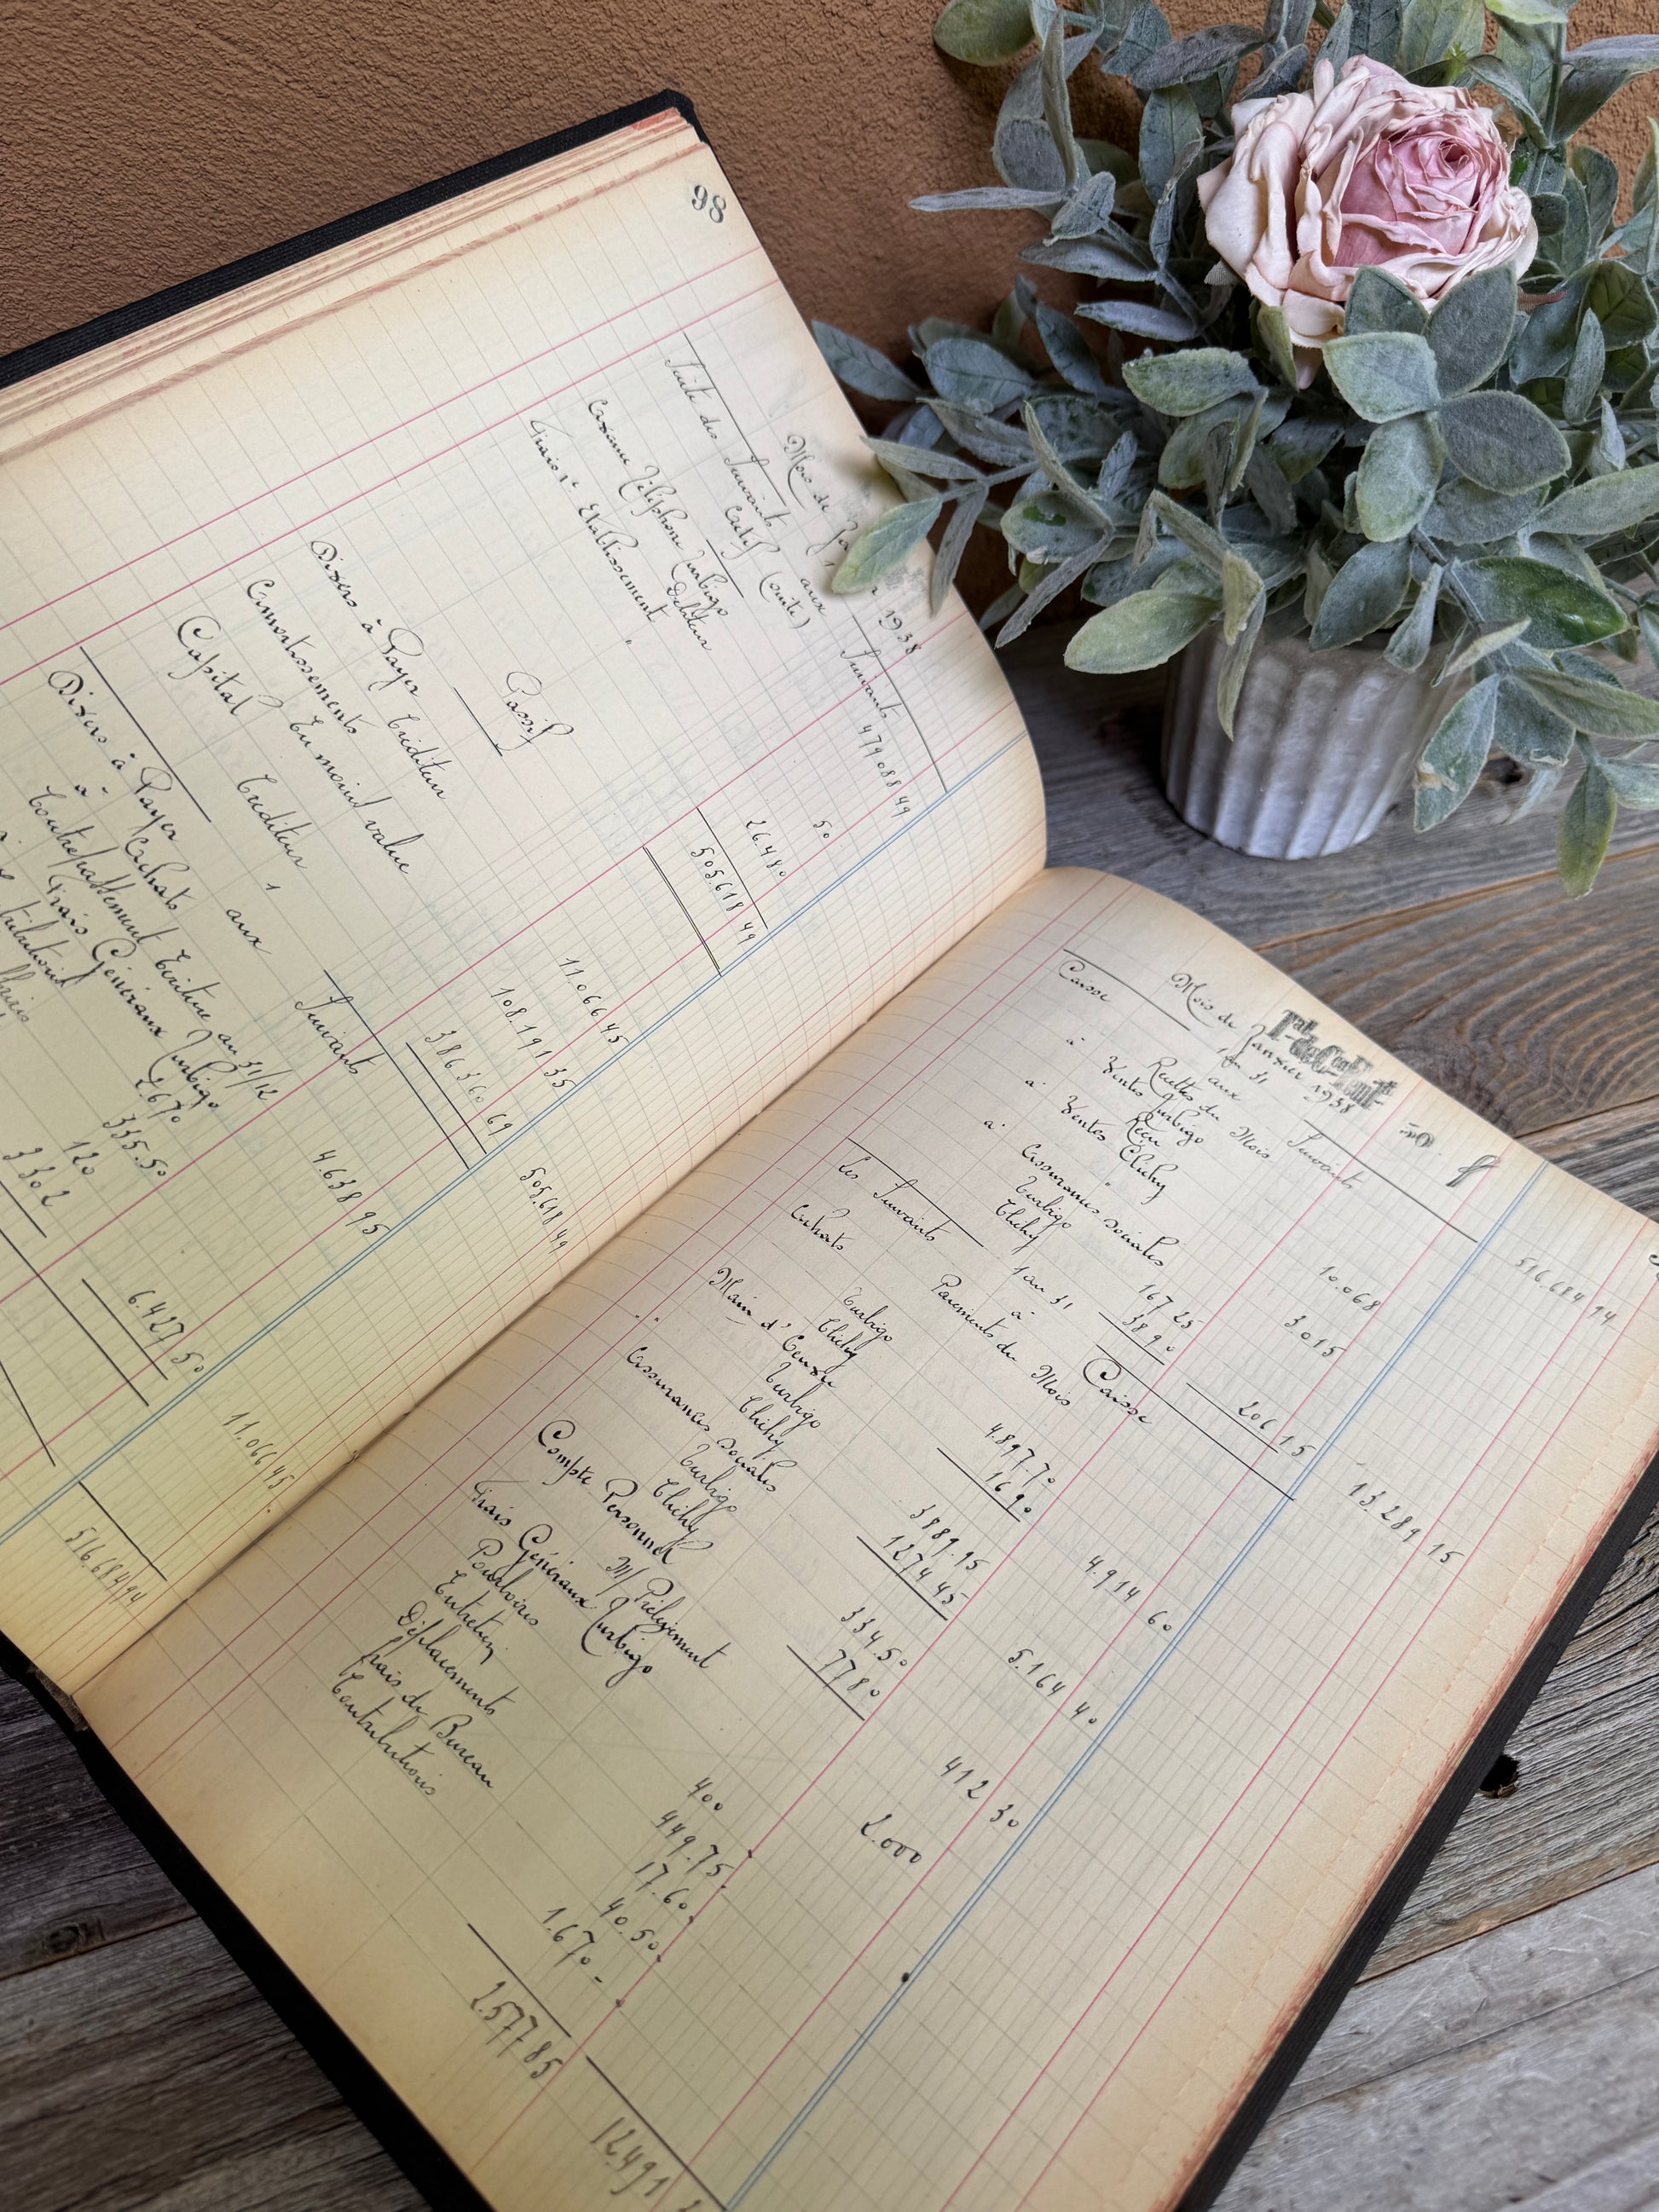 98
Mois de Janvier 1938
Suite des Suivants aux Suivants 479.088 49
Actif (suite)
Avance Téléphone Turbigo Débiteur 50
Frais 1e Etablissement " 26.480
505.618 49
Passif
Divers à Payer Créditeur 11.066 45
Amortissements En moins value 108.191 35
Capital Créditeur 386.360 69
505.618 49
1
aux Suivants
Divers à Payer
à Achats 4.638 95
Contrepassement Ecriture au 31/12
Frais Généraux Turbigo
2.670
335.50
120
3302
6.427 50
11.066 45
516.684 94
Mois de Janvier 1938
516.684 94
Caisse aux Suivants
1 au 31
Recettes du Mois
à Ventes Turbigo 10.068
Reçu
à Ventes Clichy 3.015
à Assurances Sociales
Turbigo 167 25
Clichy 38 90
206 15
13.289 15
Les Suivants à Caisse
1 au 31
Paiements du Mois
Achats
Turbigo 4.897.70
Clichy 16 90
4.914 60
Main d'Oeuvre
Turbigo 3889.95
Clichy 1274 45
5.164 40
Assurances Sociales
Turbigo 334.50
Clichy 77 80
412 30
Compte Personnel
M/ Prélèvement 2.000
Frais Généraux Turbigo
Pourboires 400
Entretien 449.75
Déplacements 17.60
frais de Bureau 40.50
Contributions 1.670 -
2.577 85
12.491